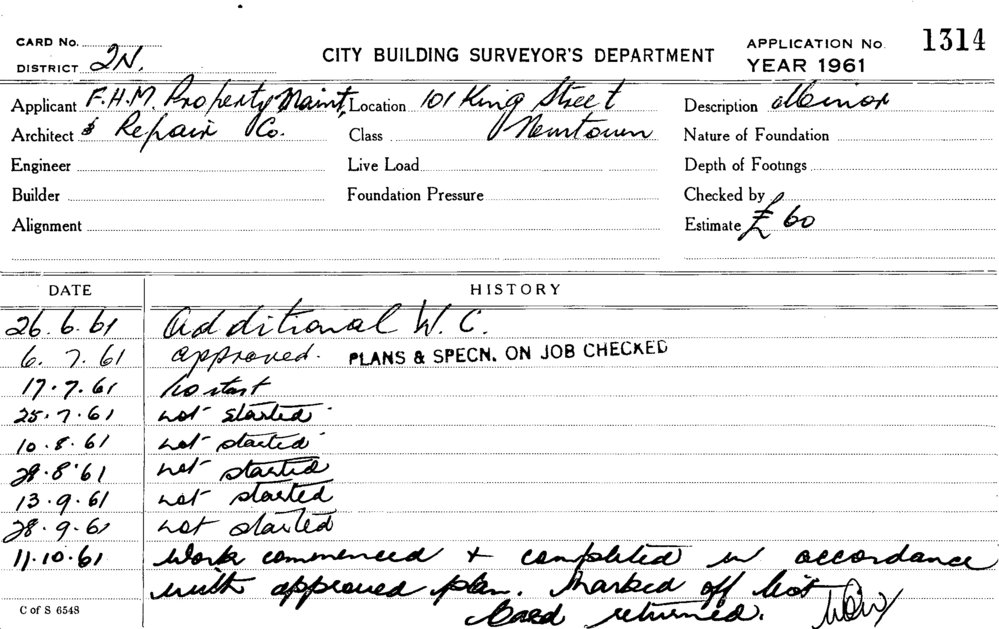 CARD No.
CITY BUILDING SURVEYOR'S DEPARTMENT
APPLICATION No. 1314
DISTRICT 2N.
YEAR 1961
Applicant F.H.M. Property Maint. Location 101 King Street Description Minor
Architect & Repair Co. Class Newtown Nature of Foundation
Engineer Live Load Depth of Footings
Builder Foundation Pressure Checked by
Alignment Estimate £ 60
DATE HISTORY
26.6.61 Additional W.C.
6.7.61 approved. PLANS & SPECN. ON JOB CHECKED
17.7.61 no start
25.7.61 not started
10.8.61 not started
28.8.61 not started
13.9.61 not started
28.9.61 not started
11.10.61 Work commenced + completed in accordance
with approved plan. Marked off list
C of S 6548 Card returned.